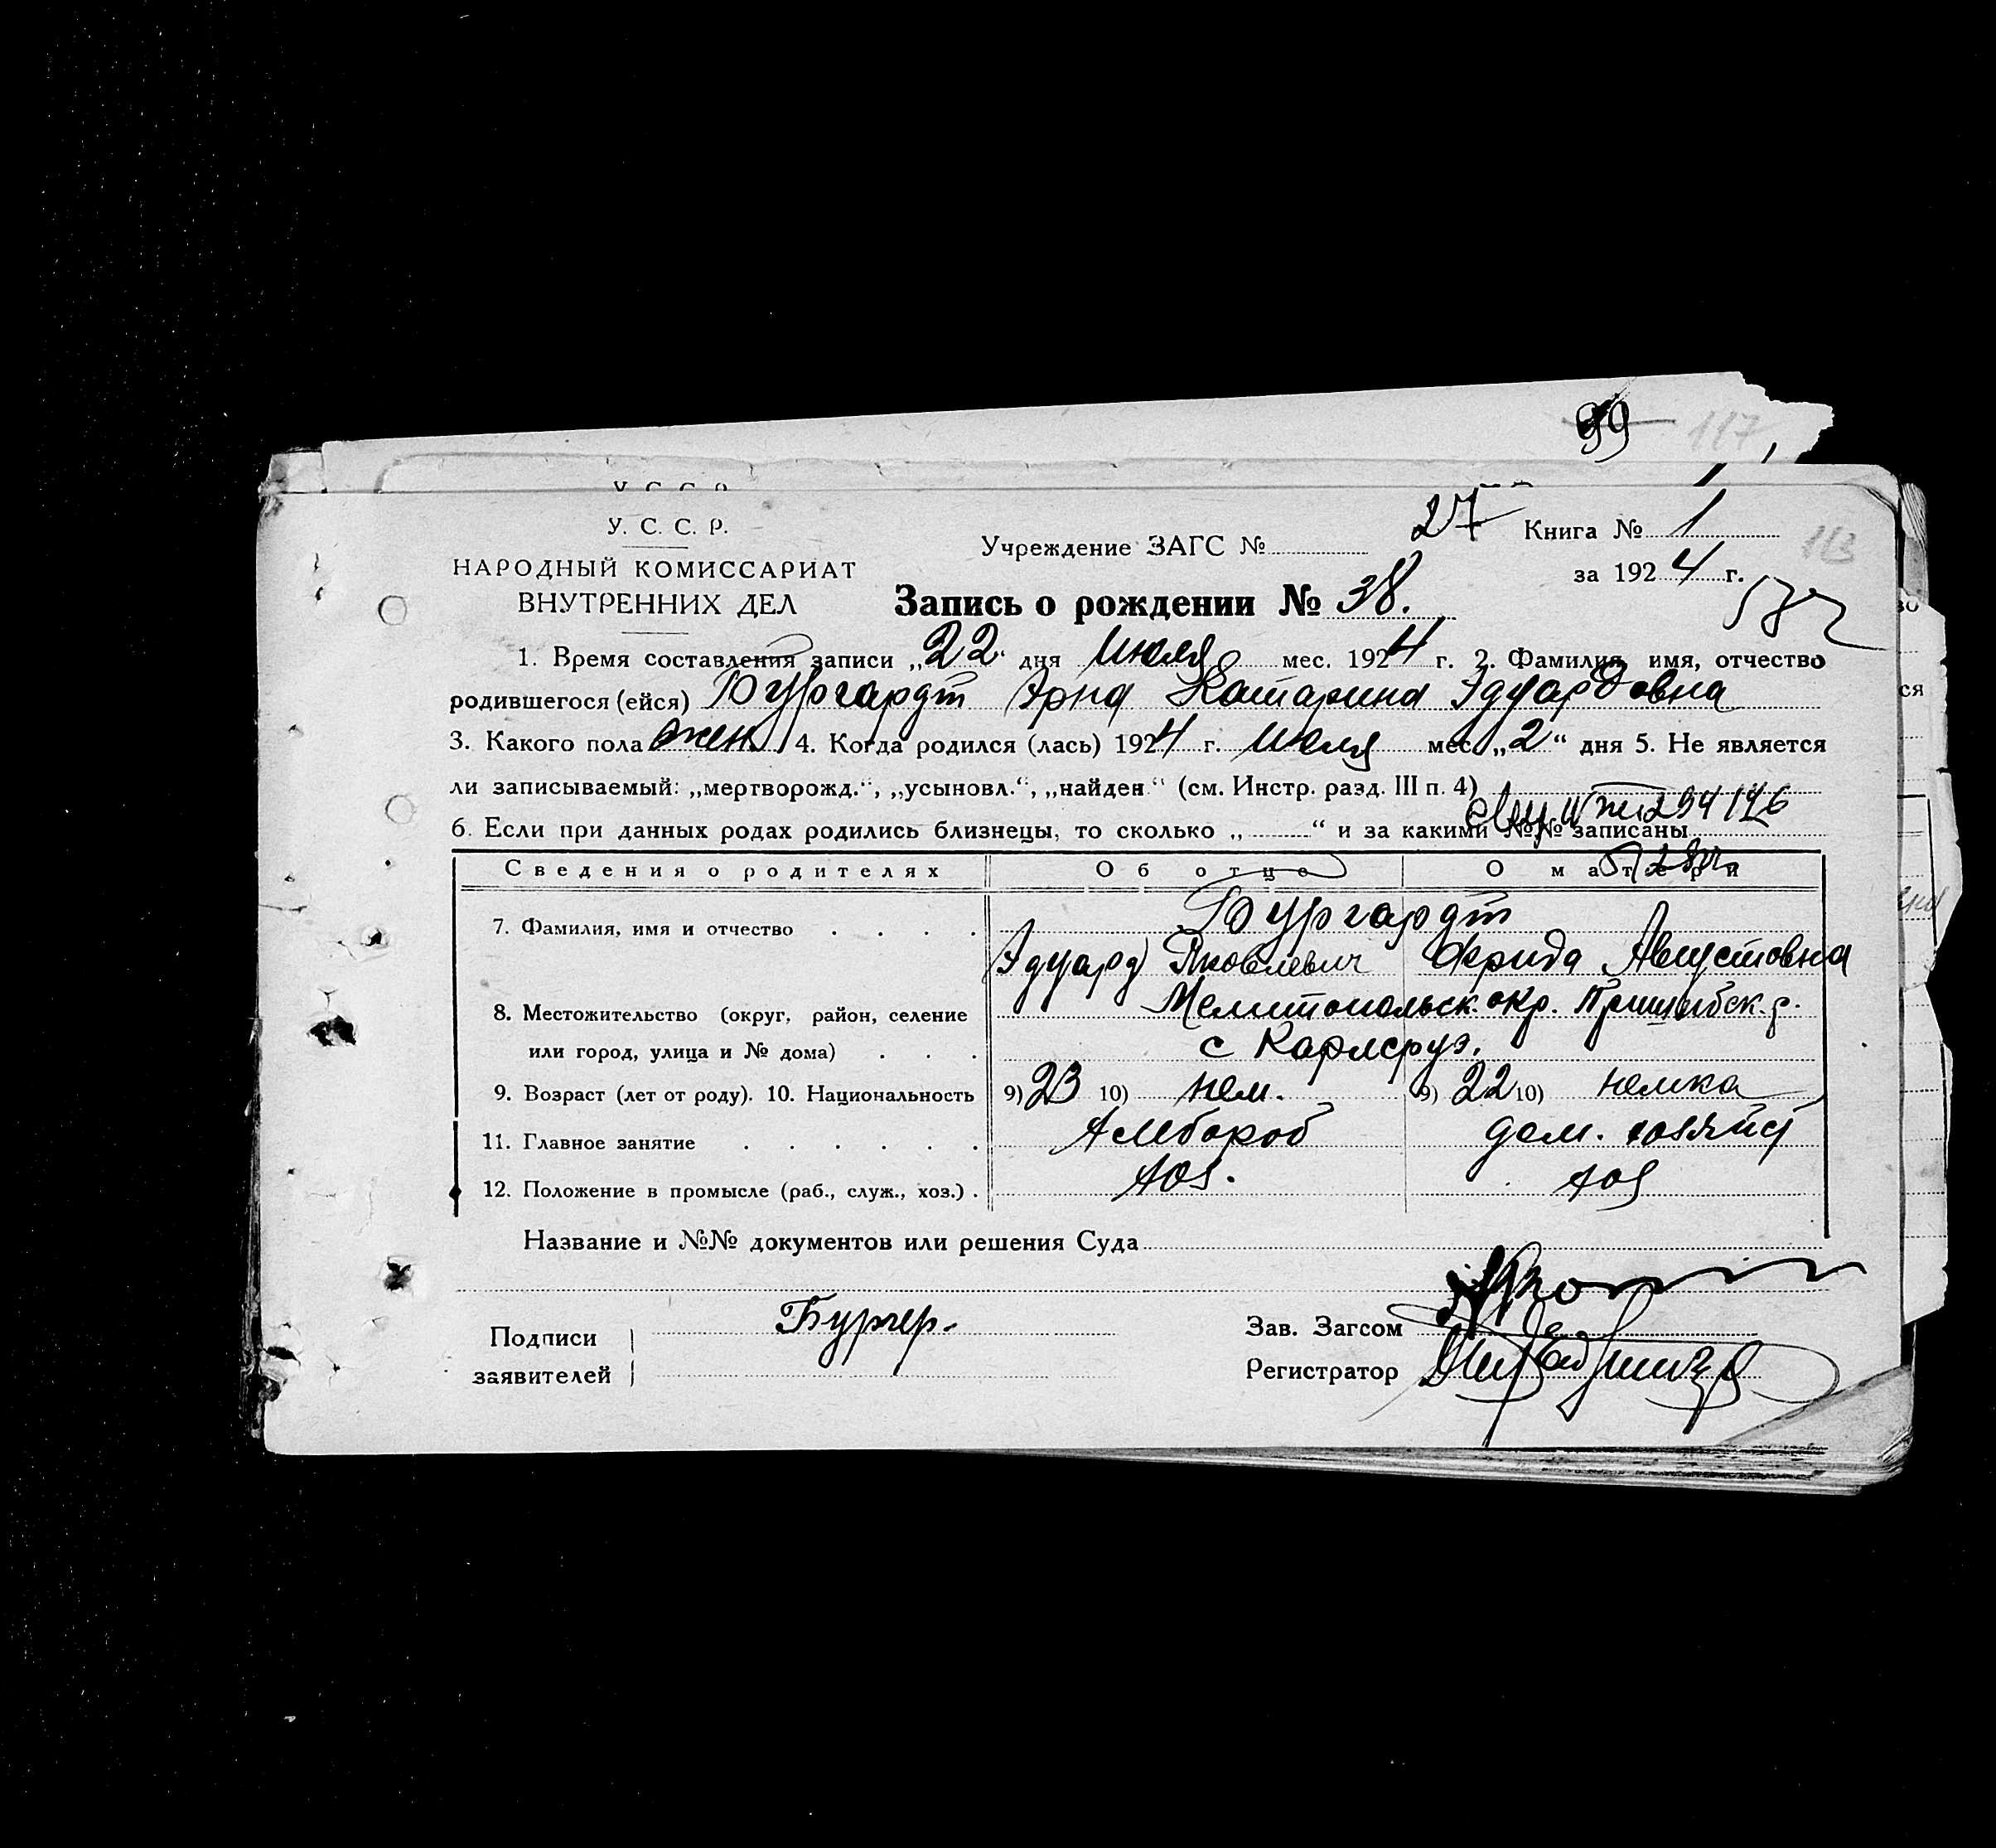 99 117
У. С. С. Р.
27 Книга № 1
У. С. С. Р.
Учреждение ЗАГС №
113
НАРОДНЫЙ КОМИССАРИАТ
ВНУТРЕННИХ ДЕЛ
за 1924 г.
Запись о рождении № 38.
1. Время составления записи „22" дня Июля мес. 1924 г. 2. Фамилия, имя, отчество
родившегося (ейся) Бургардт Эрна Катарина Эдуардовна
3. Какого пола жен. 4. Когда родился (лась) 1924 г. июля мес. „2“ дня 5. Не является
ли записываемый: „мертворожд.“, „усыновл.“, „найден“ (см. Инстр. разд. III п. 4)
6. Если при данных родах родились близнецы, то сколько „ “ и за какими №№ записаны
Сведения о родителях Об отце О матери
7. Фамилия, имя и отчество Бургардт
Эдуард Яковлевич Фрида Августовна
8. Местожительство (округ, район, селение Мелитопольск. окр. Пришибск. р.
или город, улица и № дома) с Карлсруэ.
9. Возраст (лет от роду). 10. Национальность 9) 23 10) нем. 9) 22 10) немка
11. Главное занятие хлебороб дом. хозяйст
12. Положение в промысле (раб., служ., хоз.) хоз. хоз
Название и №№ документов или решения Суда
Подписи
заявителей Бургер.
Зав. Загсом
Регистратор